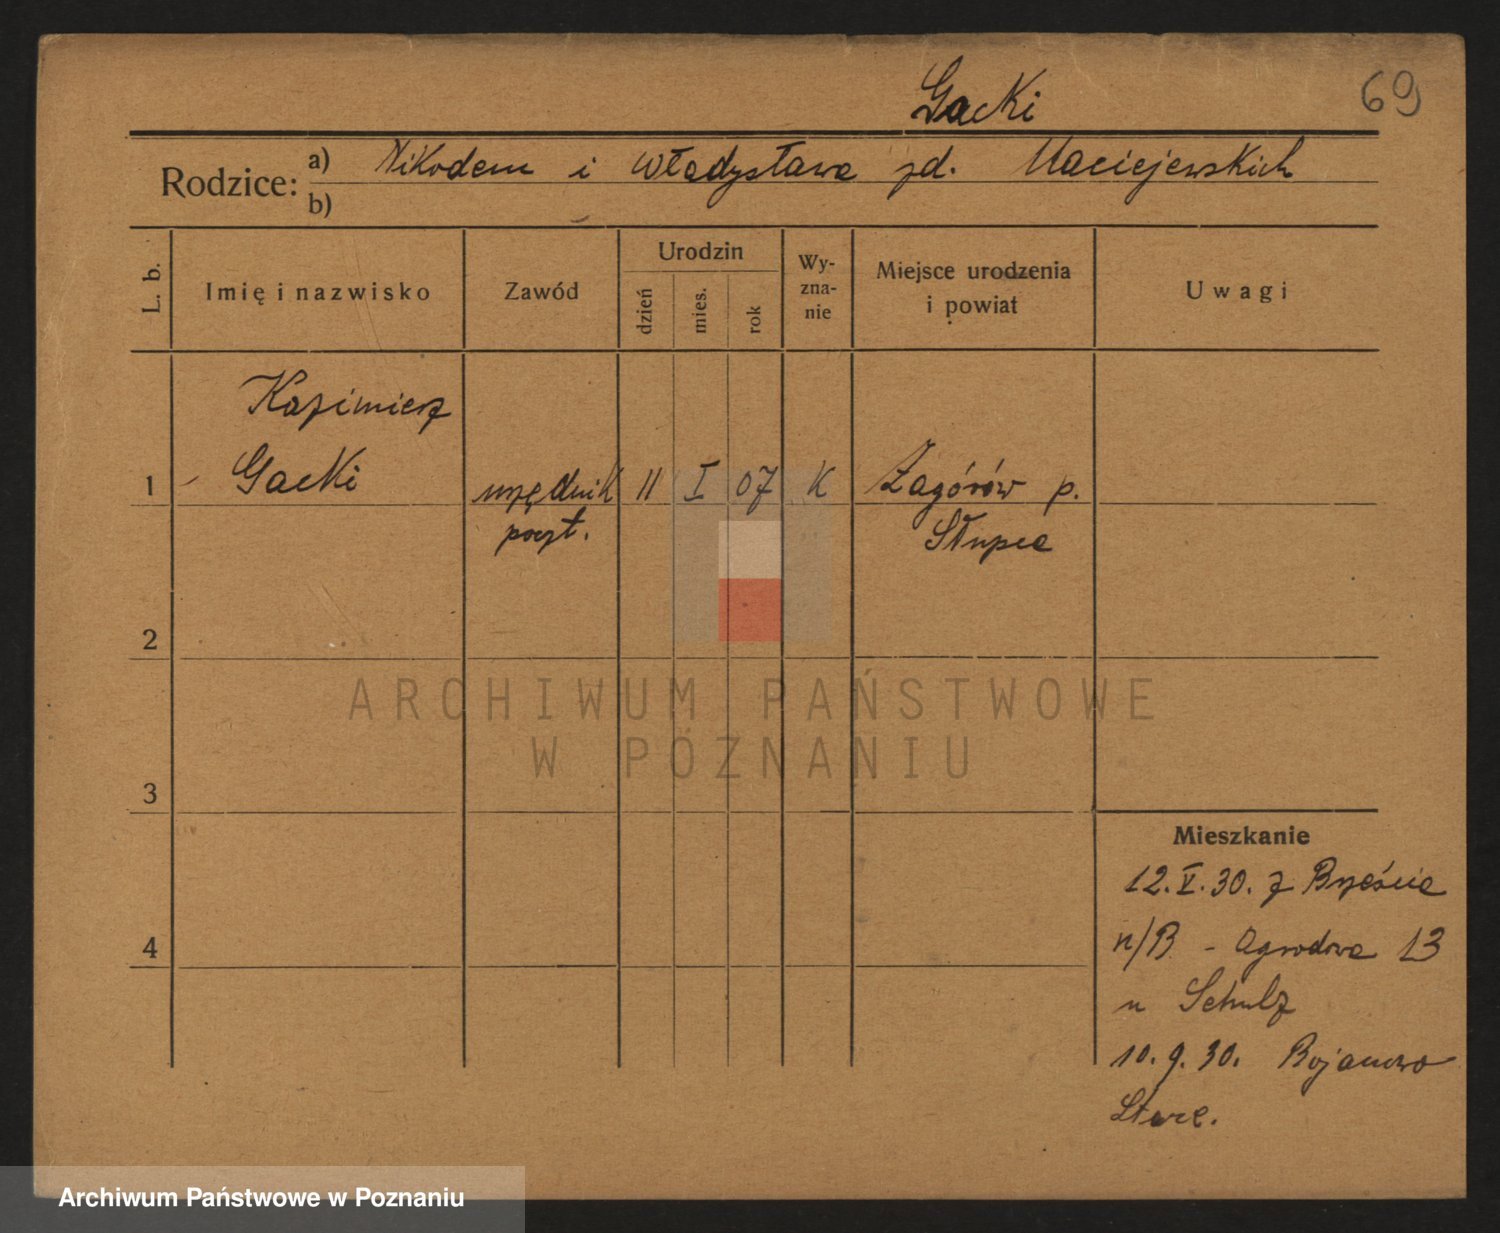 Gacki
69
Rodzice: a) Nikodem i Władysława zd. Maciejewskich
b)
L. b.
Imię i nazwisko
Zawód
Urodzin
dzień
mies.
rok
Wy-
zna-
nie
Miejsce urodzenia
i powiat
Uwagi
Kazimierz
1 - Gacki urzędnik 11 I 07 K Zagórów p.
poczt. Słupca
2
3
4
Mieszkanie
12.V.30. z Brześcia
n/B - Ogrodowa 13
u Schulz
10.9.30. Bojanowo
Stare.
ARCHIWUM PAŃSTWOWE
W POZNANIU
Archiwum Państwowe w Poznaniu